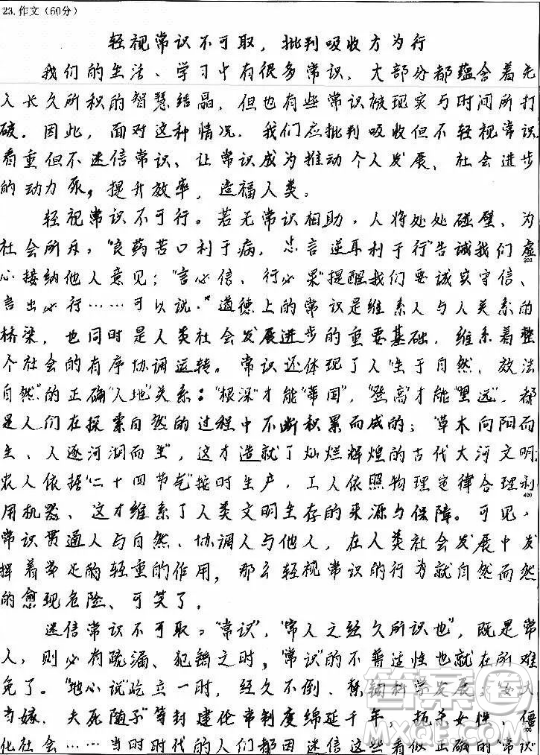 23.作文(60分)
轻视常识不可取，批判吸收方为行
我们的生活、学习中有很多常识，大部分都蕴含着先
人长久所积的智慧结晶，但也有些常识被现实与时间所打
破。因此，面对这种情况，我们应批判吸收但不轻视常识
看重但不迷信常识、让常识成为推动个人发展、社会进步
的动力泵，提升效率，造福人类。
轻视常识不可行。若无常识相助，人将处处碰壁、为
社会所斥，"良药苦口利于病，忠言逆耳利于行"告诫我们虚
心接纳他人意见；"言必信、行必果"提醒我们要诚实守信、
言出必行……可以说，道德上的常识是维系人与人关系的
桥梁，也同时是人类社会发展进步的重要基础，维系着整
个社会的有序协调运转。常识还体现了人"生于自然、放法
自然"的正确"人地"关系："根深"才能"蒂固"，"登高"才能"望远"，都
是人们在探索自然的过程中不断积累而成的；"草木向阳而
生、人逐河洞而生"，这才造就了灿烂辉煌的古代大河文明；
农人依据"二十四节气"按时生产，工人依照物理定律合理利
用机器、这才维系了人类文明生存的来源与保障。可见，
常识贯通人与自然、协调人与他人，在人类社会发展中发
挥着举足的轻重的作用，那么轻视常识的行为就自然而然
的愈现危险、可笑了。
迷信常识不可取。"常识"，"常人之经久所识也"，既是常
人，则必有疏漏、犯错之时，"常识"的不普适性也就在所难
免了。"地心说"屹立一时，经久不倒、禁锢科学发展；"女大
当嫁、夫死随子"等封建伦常制度绵延千年，扼杀女性，僵
化社会……当时时代的人们都因迷信这些看似正确的常识